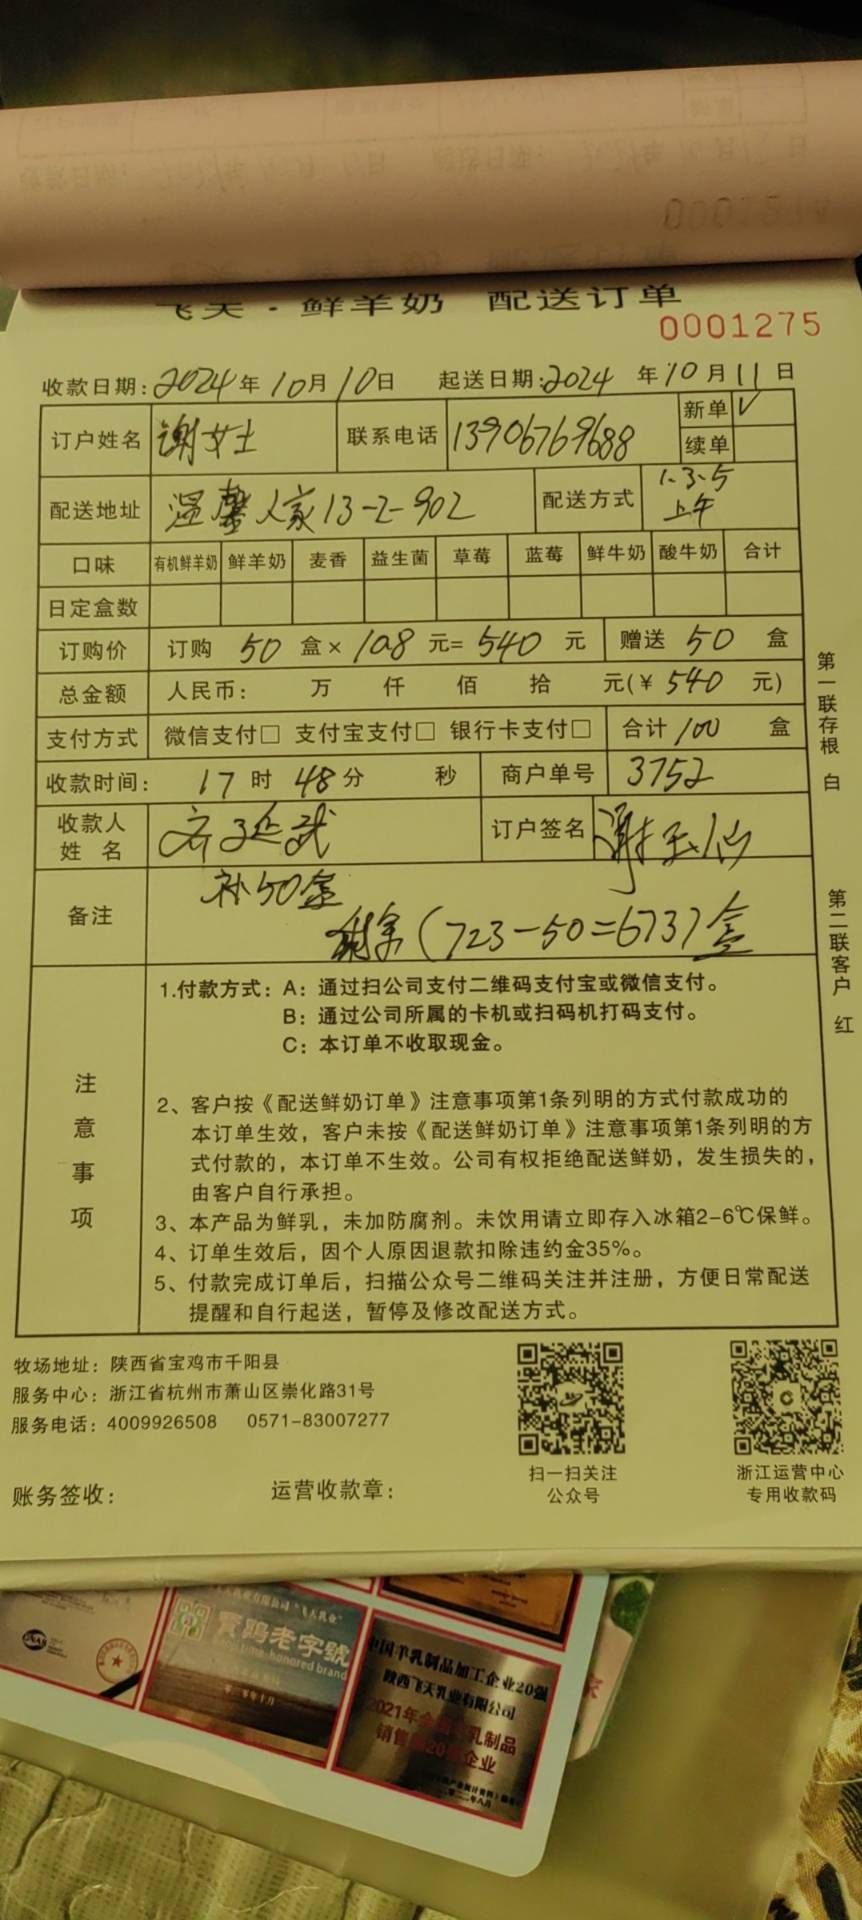 飞天·鲜羊奶 配送订单
0001275
收款日期:2024年10月10日 起送日期:2024年10月11日
订户姓名 谢女士 联系电话 13906769688 新单 √
续单
配送地址 温馨人家13-2-902 配送方式 1.3.5
上午
口味 有机鲜羊奶 鲜羊奶 麦香 益生菌 草莓 蓝莓 鲜牛奶 酸牛奶 合计
日定盒数
订购价 订购 50 盒×10.8元=540元 赠送 50 盒
总金额 人民币: 万 仟 佰 拾 元(¥540元)
支付方式 微信支付□ 支付宝支付□ 银行卡支付□ 合计100 盒
收款时间: 17时48分 秒 商户单号 3752
收款人
姓 名 订户签名
备注 补50盒
剩余(723-50=673)盒
第一联存根 白
第二联客户 红
注意事项
1.付款方式:A:通过扫公司支付二维码支付宝或微信支付。
B:通过公司所属的卡机或扫码机打码支付。
C:本订单不收取现金。
2、客户按《配送鲜奶订单》注意事项第1条列明的方式付款成功的
本订单生效,客户未按《配送鲜奶订单》注意事项第1条列明的方
式付款的,本订单不生效。公司有权拒绝配送鲜奶,发生损失的,
由客户自行承担。
3、本产品为鲜乳,未加防腐剂。未饮用请立即存入冰箱2-6℃保鲜。
4、订单生效后,因个人原因退款扣除违约金35%。
5、付款完成订单后,扫描公众号二维码关注并注册,方便日常配送
提醒和自行起送,暂停及修改配送方式。
牧场地址:陕西省宝鸡市千阳县
服务中心:浙江省杭州市萧山区崇化路31号
服务电话:4009926508 0571-83007277
扫一扫关注
公众号
浙江运营中心
专用收款码
账务签收: 运营收款章:
寳鷄老字號
time-honored brand
中国羊乳制品加工企业20强
陕西飞天乳业有限公司